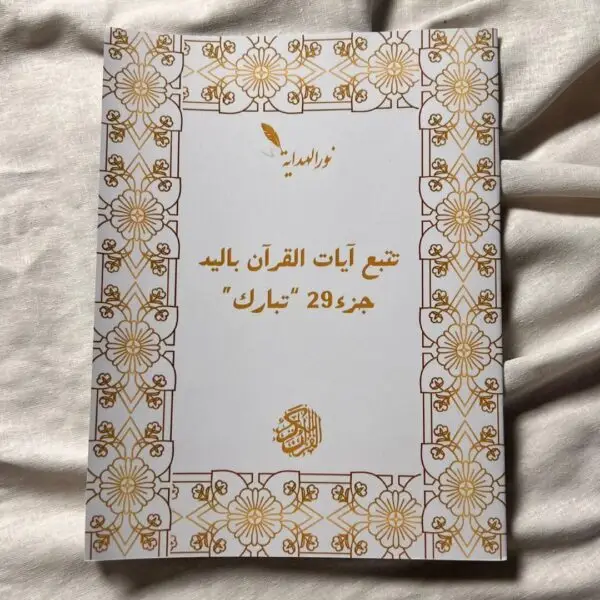 نور الهداية
تتبع آيات القرآن باليد
جزء29 "تبارك"
القرآن الكريم